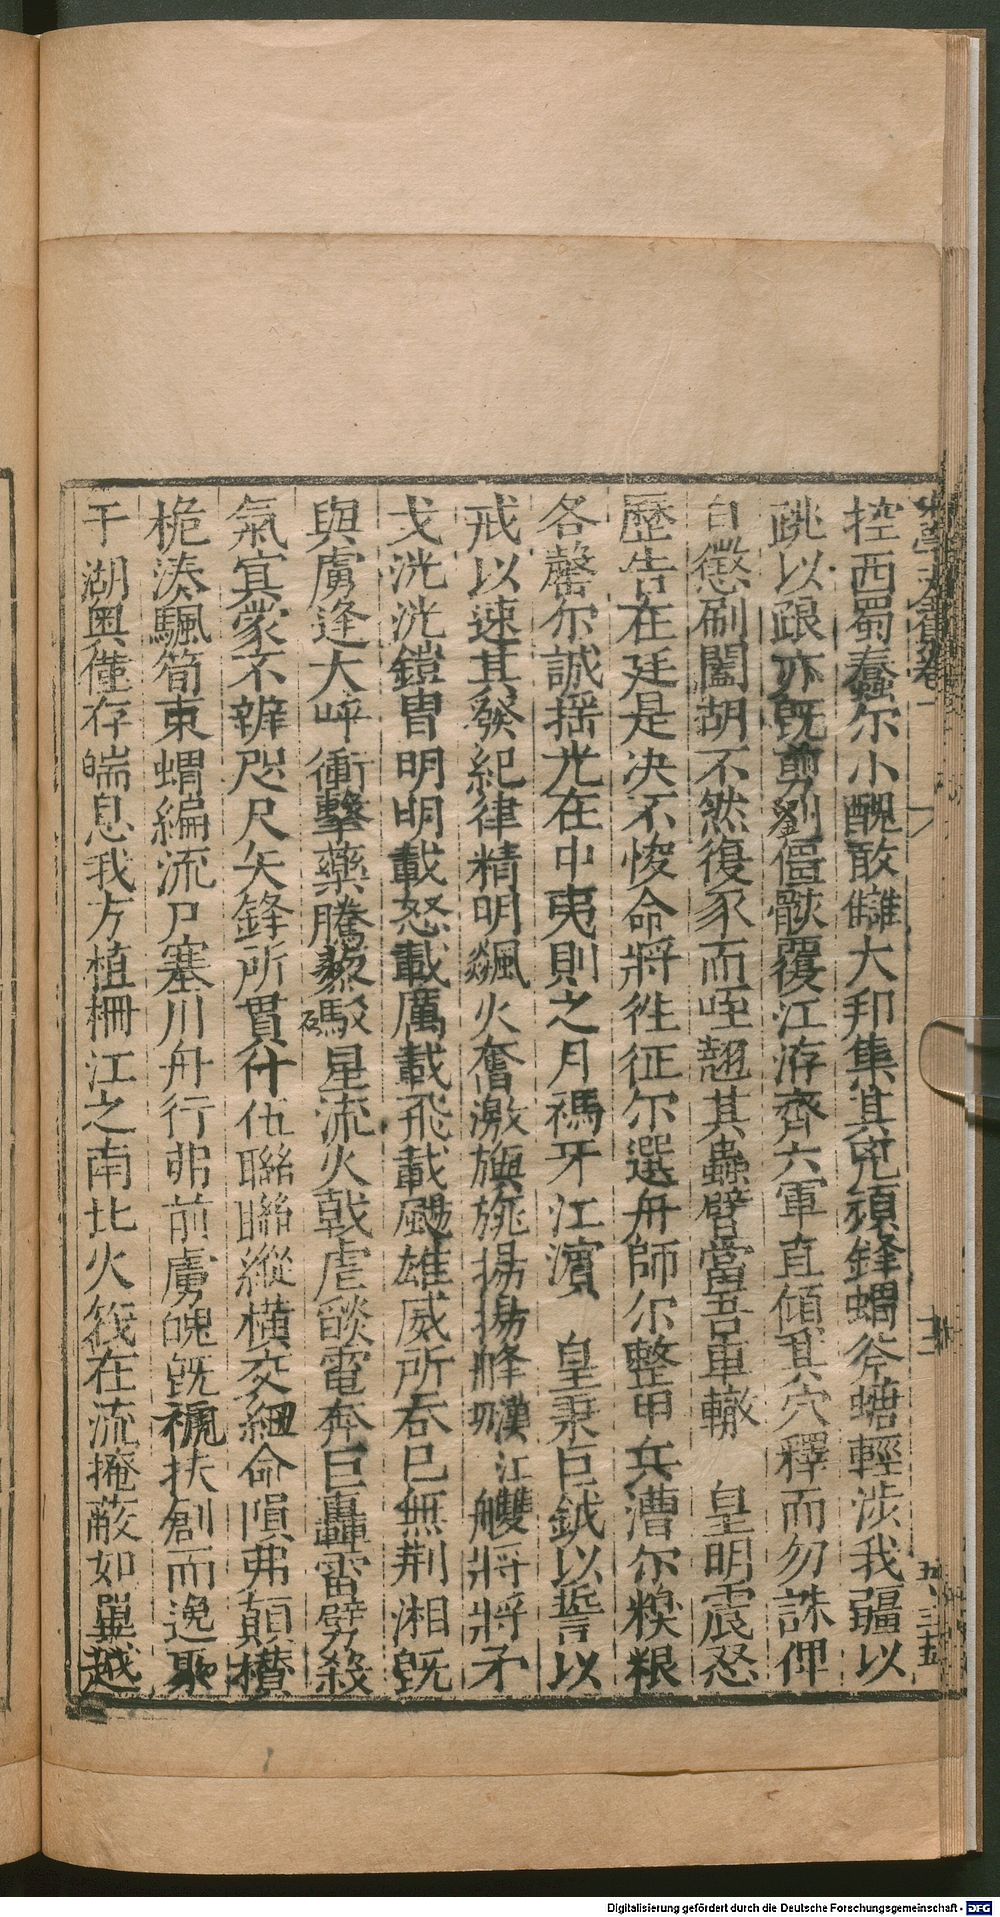 控西蜀蠢尔小醜敢讎大邦集其兇頑鋒蝟斧螗輕涉我疆以
跳以踉亦既剪劉僵骸覆江洊齊六軍直傾其穴釋而勿誅俾
自懲刷闔胡不然復豕而咥翹其蟲臂當吾車轍 皇明震怒
歷告在廷是决不悛命將徃征尔選舟師尔整甲兵漕尔糗粮
各罄尔誠揺光在中夷則之月禡牙江濵 皇秉巨鉞以誓以
戒以速其發紀律精明飈火奮激旟旐揚揚絳䌽漢江艭將將矛
戈洸洸鎧胄明明載怒載厲載飛載颺雄威所吞已無荆湘既
與虜逢大呼衝擊藥騰駁星流火戟虐燄電奔巨轟雷劈殺
氣㝠蒙不辨咫尺矢鋒所貫什伍聯聯縱横交紐命隕弗顛檣
桅湊颿筍束蝟編流尸塞川舟行弗前虜魄既褫扶創而逸聚
于湖奧僅存喘息我方植柵江之南北火筏在流掩蔽如單越
五 三五
Digitalisierung gefördert durch die Deutsche Forschungsgemeinschaft - DFG